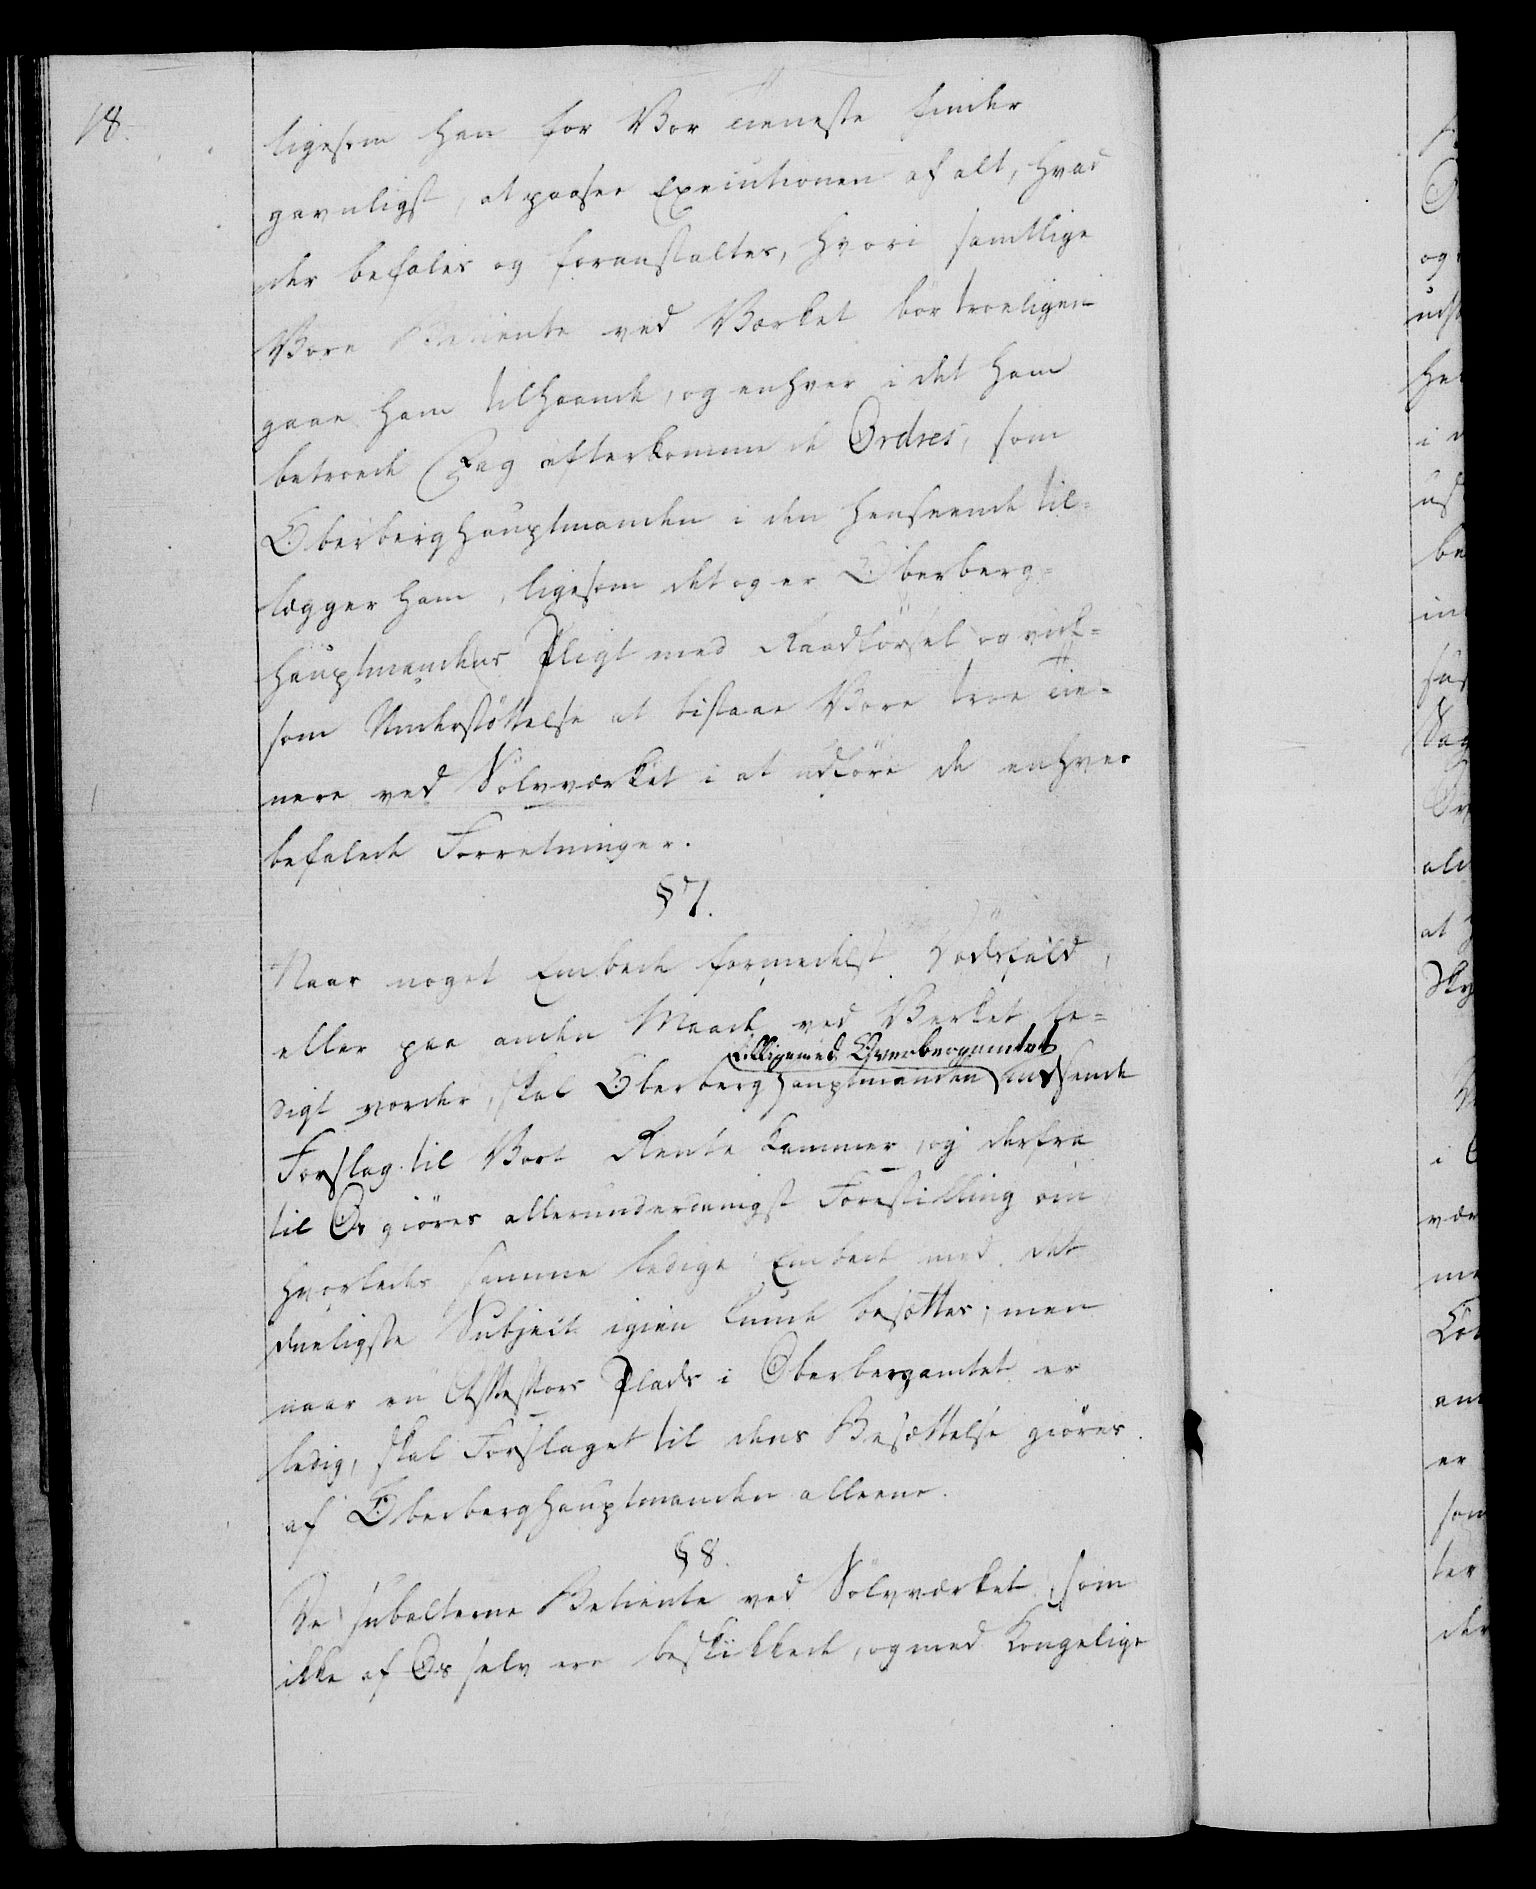 18.
ligesom han for Vor Tieneste finder
gavnligst, at paasee Executionen af alt, hvad
der befales og foranstaltes, hvori samtlige
Vore Betiente ved Værket bör troeligen
gaae ham tilhaande, og enhver i det ham
betroede Fag efterkomme de Ordres, som
Oberberghauptmanden i den Henseende til-
lægger ham, ligesom det og er Oberberg-
hauptmandens Pligt med Raadförsel og virk-
som Understöttelse at bistaae Vore troe Tie-
nere ved Sölvværket i at udföre de enhver
befalede Forretninger.
§ 7.
Naar noget Embede formedelst Dödsfald,
eller paa anden Maade ved Verket le-
tilligemed Overbergamtet
digt vorder, skal Oberberghauptmanden indsende
Forslag til Vort Rente Kammer, og derfra
til Os giöres allerunderdanigst Forestilling om
hvorledes samme ledige Embede med det
dueligste Subject igien kunde besættes; men
naar en Assessors Plads i Oberbergamtet er
ledig, skal Forslaget til dens Besættelse giöres
af Oberberghauptmanden alleene.
§ 8.
De subalterne Betiente ved Sölvværket, som
ikke af Os selv ere beskikkede, og med Kongelige